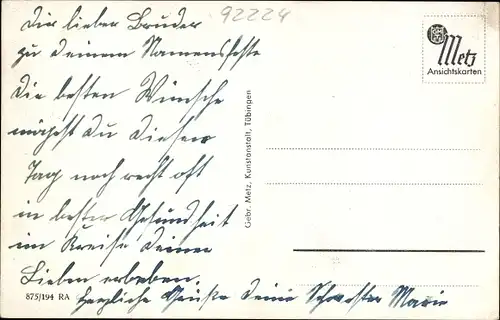 Dir lieber Bruder
92224
zu Deinem Namensfeste
die besten Wünsche
mögest du diesen
Tag noch recht oft
in bester Gesundheit
im Kreise Deiner
Lieben erleben.
Herzliche Grüße Deine Schwester Marie
875/194 RA
Gebr. Metz, Kunstanstalt, Tübingen
Metz
Ansichtskarten